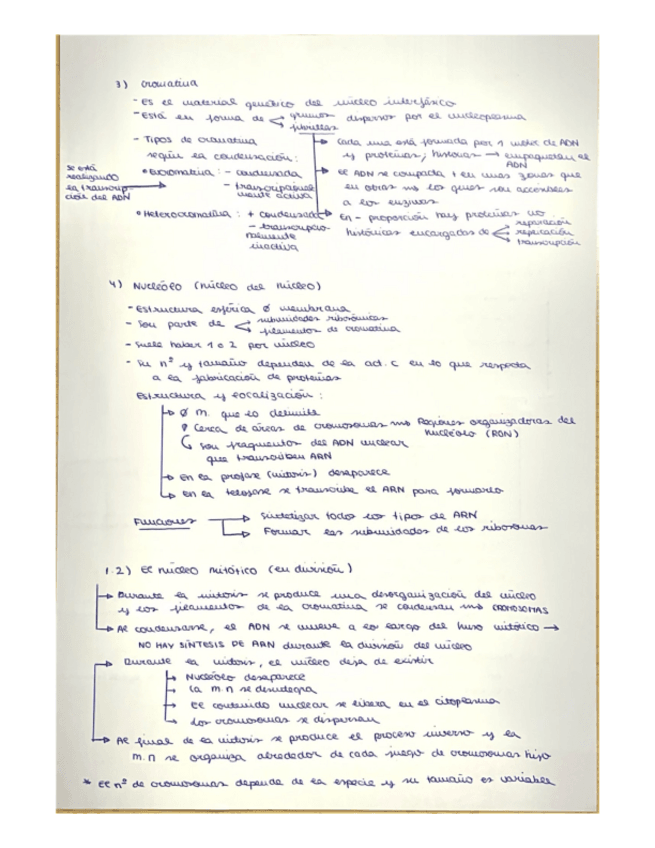 3) cromatina
- Es el material genético del núcleo interfásico
- Está en forma de grumos dispersos por el nucleoplasma
fibrillas
- Tipos de cromatina
según la condensación:
• Eucromatina: - condensada
- transcripcionalmente activa
se está
realizando
la transcrip
ción del ADN
• Heterocromatina: + condensada
- transcripcio
nalmente
inactiva
cada una está formada por 1 moléc de ADN
y proteínas, histonas → empaquetan el
ADN
el ADN se compacta + en unas zonas que
en otras las ques son accesibles
a los enzimas
En - proporción hay proteínas no
histónicas encargadas de reparación
replicación
transcripción
4) Nucléolo (núcleo del núcleo)
- Estructura esférica ∅ membrana
- Son parte de subunidades ribosómicas
filamentos de cromatina
- Suele haber 1 o 2 por núcleo
- Su nº y tamaño dependen de la act. c en lo que respecta
a la fabricación de proteínas
Estructura y localización:
∅ m. que lo delimite
Cerca de áreas de cromosomas Regiones organizadoras del
nucléolo (RON)
Son fragmentos del ADN nuclear
que transcriben ARN
En la profase (mitosis) desaparece
en la telofase se transcribe el ARN para formarlo
Funciones → Sintetizar todos los tipos de ARN
Formar las subunidades de los ribosomas
1.2) El núcleo mitótico (en división)
Durante la mitosis se produce una desorganización del núcleo
y los filamentos de la cromatina se condensan CROMOSOMAS
Al condensarse, el ADN se mueve a lo largo del huso mitótico →
NO HAY SÍNTESIS DE ARN durante la división del núcleo
Durante la mitosis, el núcleo deja de existir
Nucléolo desaparece
La m.n se desintegra
El contenido nuclear se libera en el citoplasma
Los cromosomas se dispersan
Al final de la mitosis se produce el proceso inverso y la
m.n se organiza alrededor de cada juego de cromosomas hijo
* El nº de cromosomas depende de la especie y su tamaño es variable